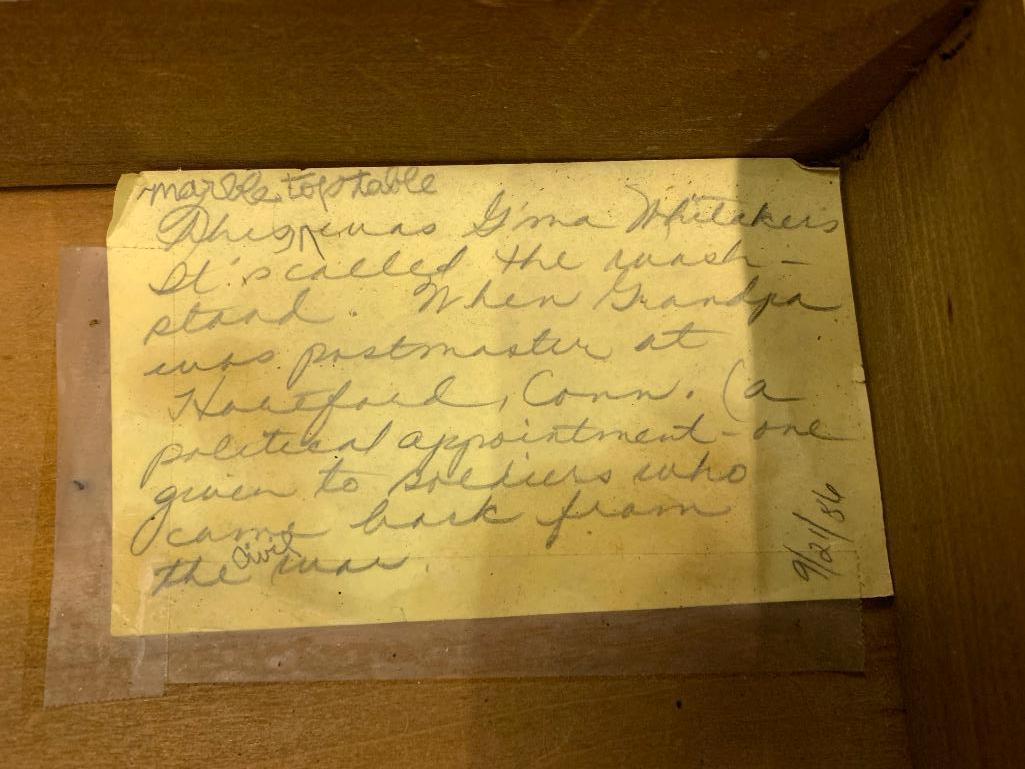 marble top table
This ^ was G'ma Whitakers
It's called the wash-
stand. When Grandpa
was postmaster at
Hartford, Conn. (a
political appointment - one
given to soldiers who
came back from
the civil war.
9/21/86